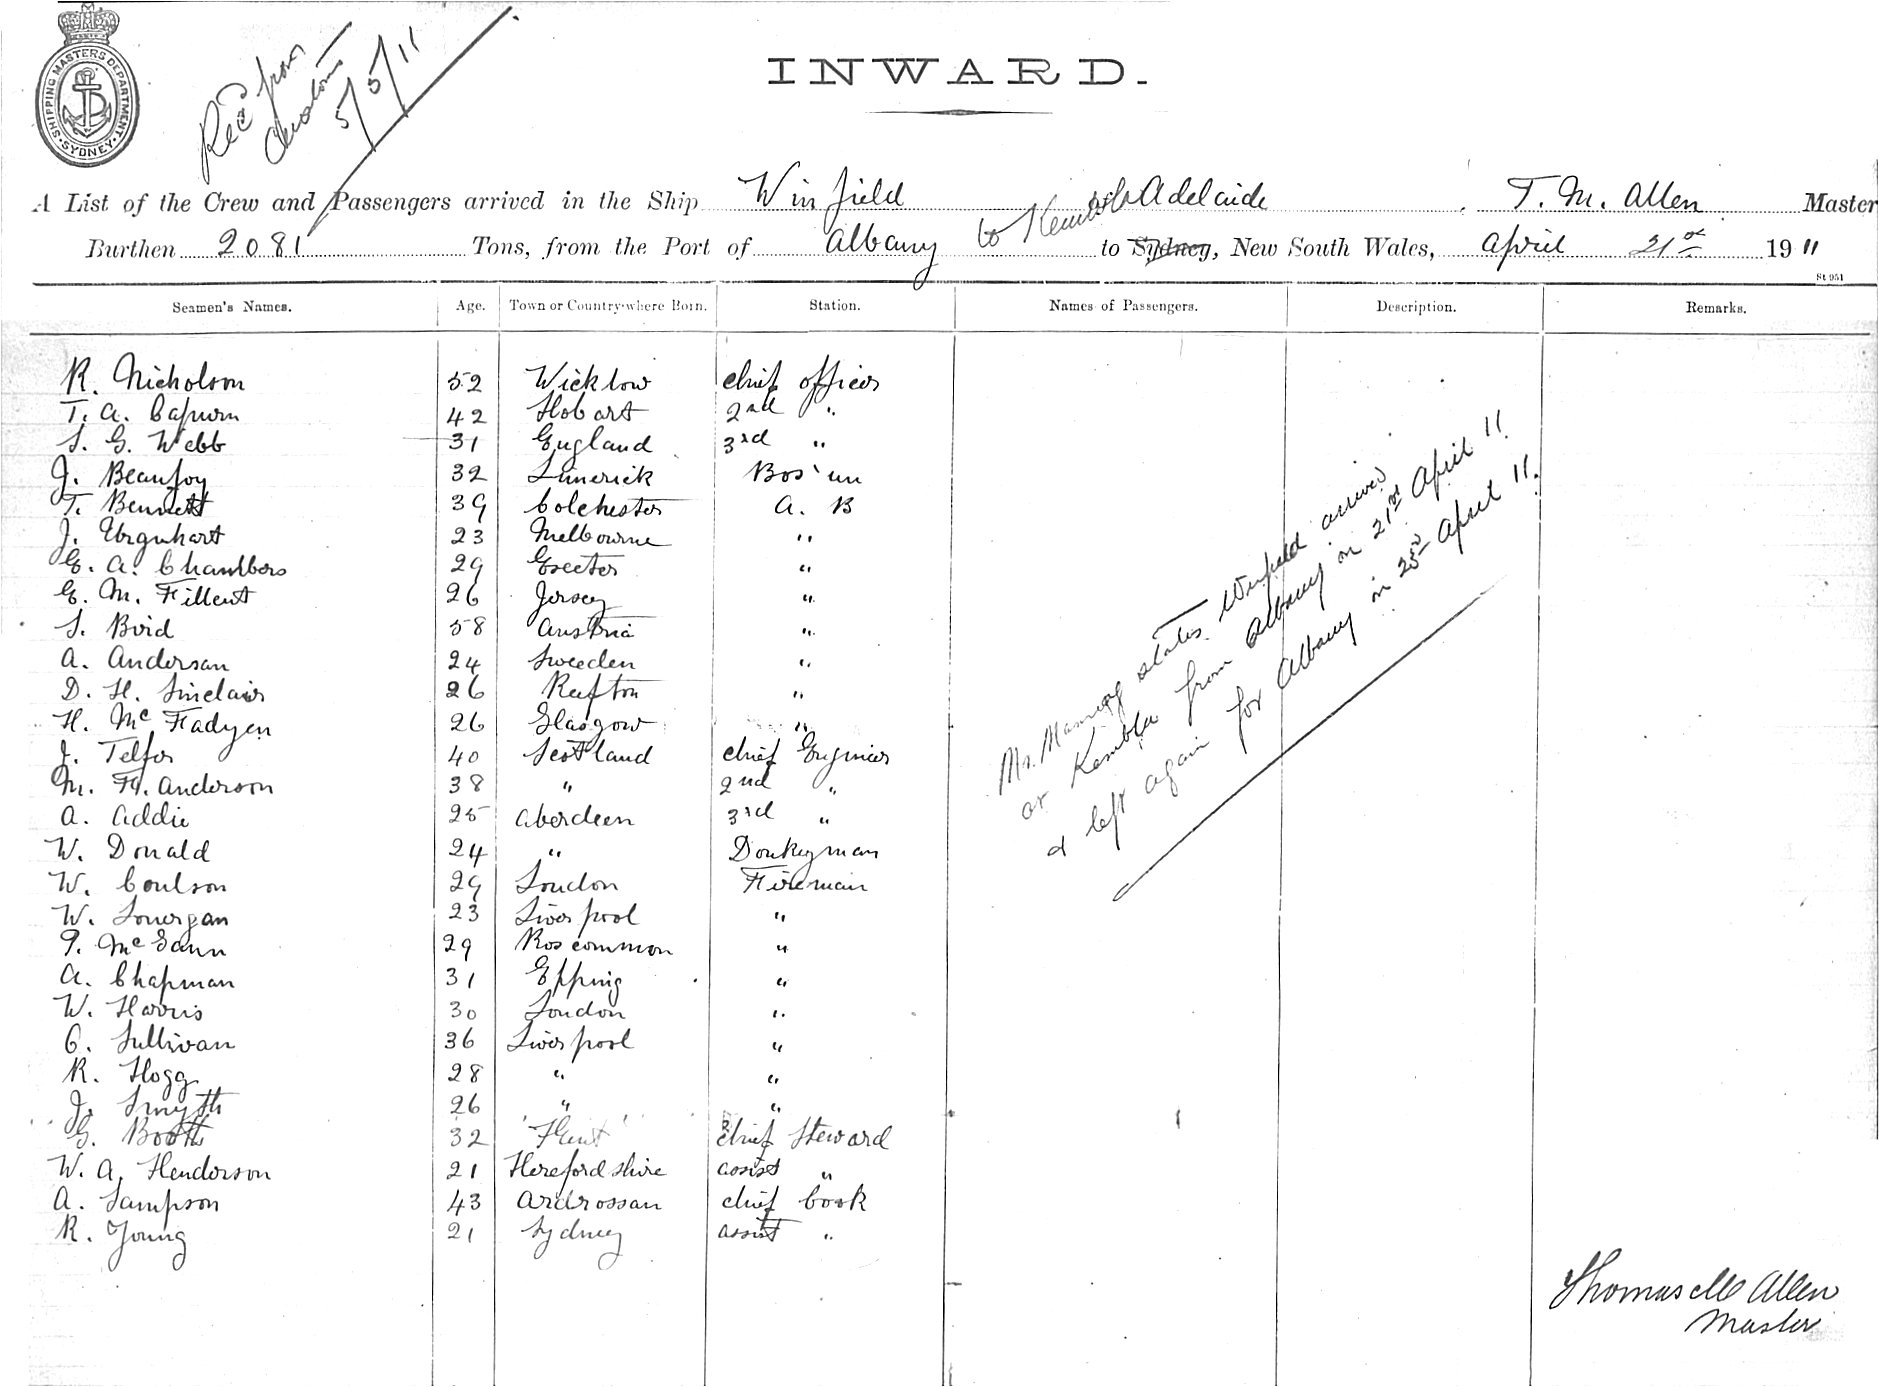 SHIPPING MASTERS DEPARTMENT
SYDNEY
Recd from
Customs
5/5/11
INWARD.
A List of the Crew and Passengers arrived in the Ship Winfield of Adelaide, T. M. Allen Master
Burthen 2081 Tons, from the Port of Albany to Kembla to Sydney, New South Wales, April 21st 1911
St 951
Seamen's Names. Age. Town or Country where Born. Station. Names of Passengers. Description. Remarks.
R. Nicholson 52 Wicklow chief officer
T. A. Capurn 42 Hobart 2nd "
S. G. Webb 31 England 3rd "
J. Beaufoy 32 Limerick Bos'un
T. Bennett 39 Colchester A. B
J. Urquhart 23 Melbourne "
E. A. Chambers 29 Exeter "
E. M. Fillent 26 Jersey "
S. Bvid 58 Austria "
A. Anderson 24 Sweeden "
D. H. Sinclair 26 Reefton "
H. McFadyen 26 Glasgow "
J. Telfor 40 Scotland chief Engineer
M. H. Anderson 38 " 2nd "
A. Addie 25 Aberdeen 3rd "
W. Donald 24 " Donkeyman
W. Coulson 29 London Fireman
W. Lonergan 23 Liverpool "
P. McGann 29 Roscommon "
A. Chapman 31 Epping "
W. Harris 30 London "
C. Sullivan 36 Liverpool "
R. Hogg 28 " "
J. Smyth 26 " "
G. Booth 32 Flint chief Steward
W. A. Henderson 21 Herefordshire assist "
A. Sampson 43 Ardrossan chief Cook
R. Young 21 Sydney assist "
Mr. Manning states Winfield arrived
at Kembla from Albany on 21st April 11
& left again for Albany on 23rd April 11.
Thomas M Allen
Master